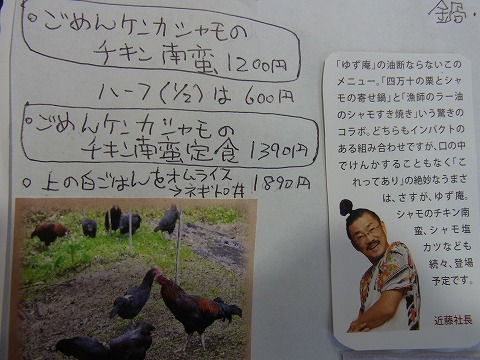 鍋・
○ごめんケンカシャモの
チキン南蛮 1200円
ハーフ(1/2)は 600円
○ごめんケンカシャモの
チキン南蛮定食 1390円
○上の白ごはんをオムライス
→ネギトロ丼 1890円
「ゆず庵」の油断ならないこの
メニュー。「四万十の栗とシャ
モの寄せ鍋」と「漁師のラー油
のシャモすき焼き」いう驚きの
コラボ。どちらもインパクトの
ある組み合わせですが、口の中
でけんかすることもなく「こ
れってあり」の絶妙なうまさ
は、さすが、ゆず庵。
シャモのチキン南
蛮、シャモ塩
カツなども
続々、登場
予定です。
近藤社長